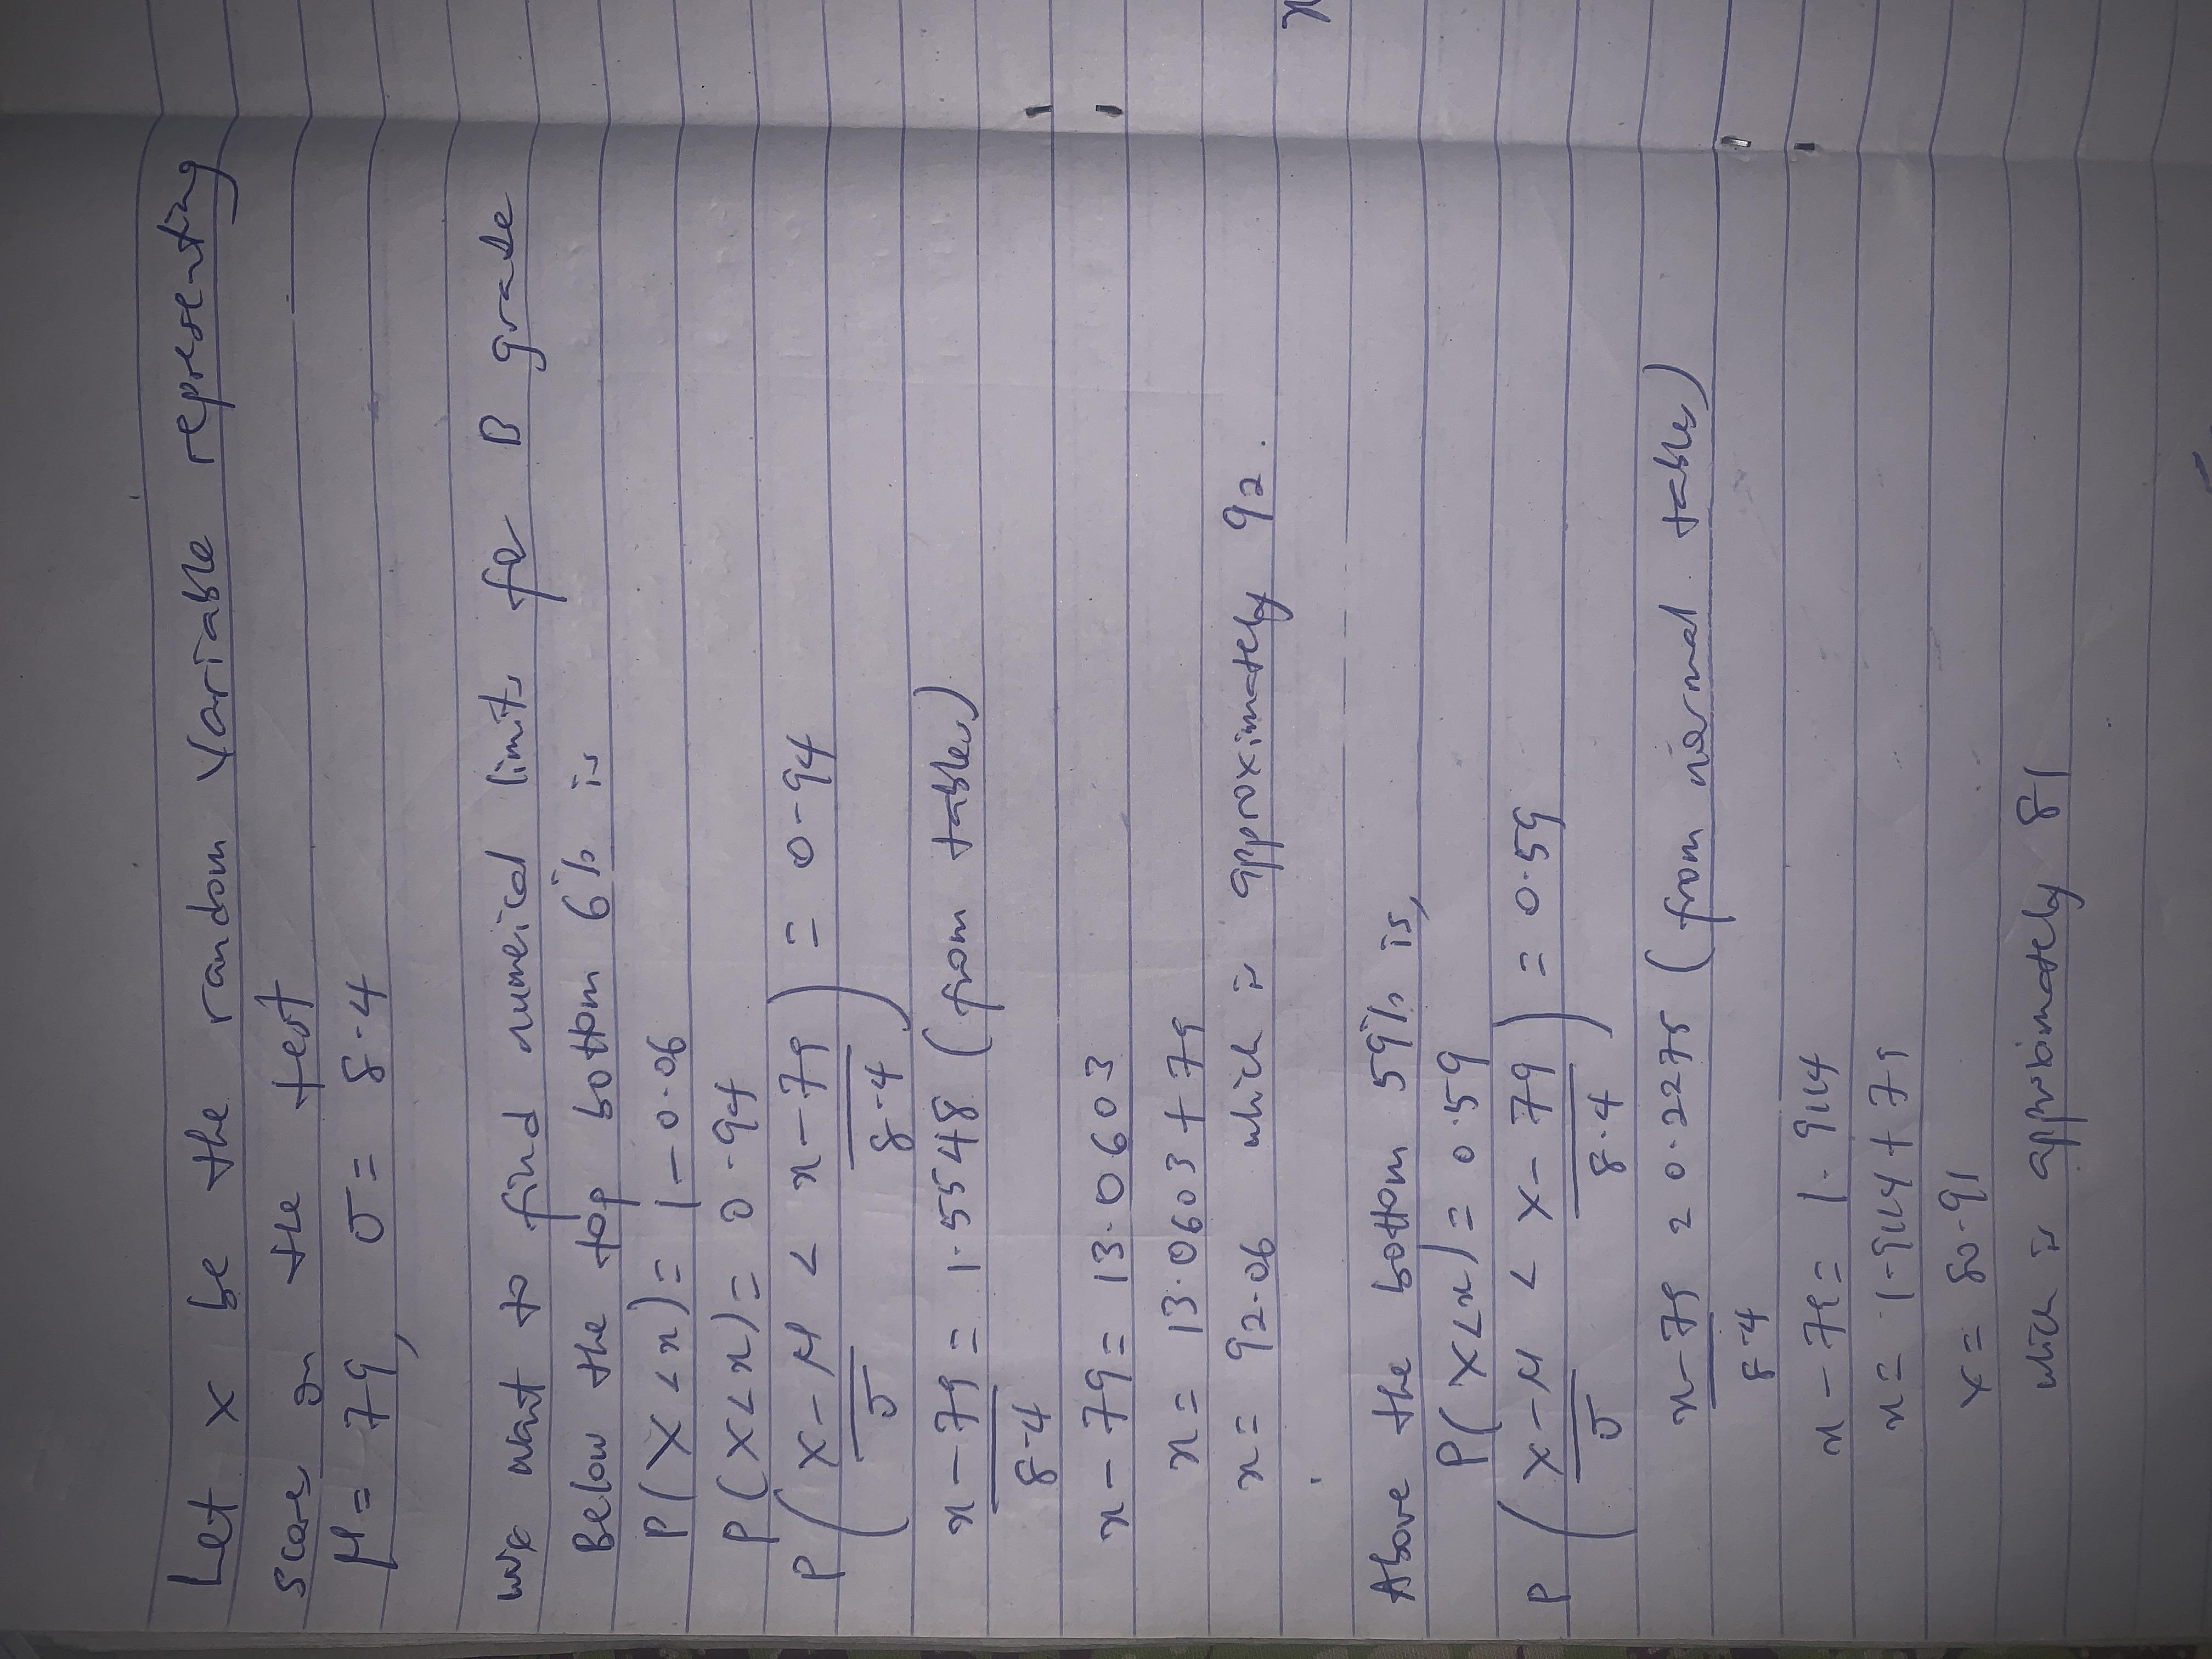 Let X be the random variable representing
score on the test
μ = 79, σ = 8.4
we want to find numerical limits for B grade
Below the top bottom 6% is
P(X < x) = 1 - 0.06
P(X < x) = 0.94
P(X - μ/σ < x - 79/8.4) = 0.94
x - 79/8.4 = 1.5548 (from tables)
x - 79 = 13.0603
x = 13.0603 + 79
x = 92.06 which is approximately 92.
Above the bottom 59% is,
P(X < x) = 0.59
P(X - μ/σ < x - 79/8.4) = 0.59
x - 79/8.4 = 0.2275 (from normal tables)
x - 79 = 1.9114
x = 1.9114 + 79
x = 80.91
which is approximately 81